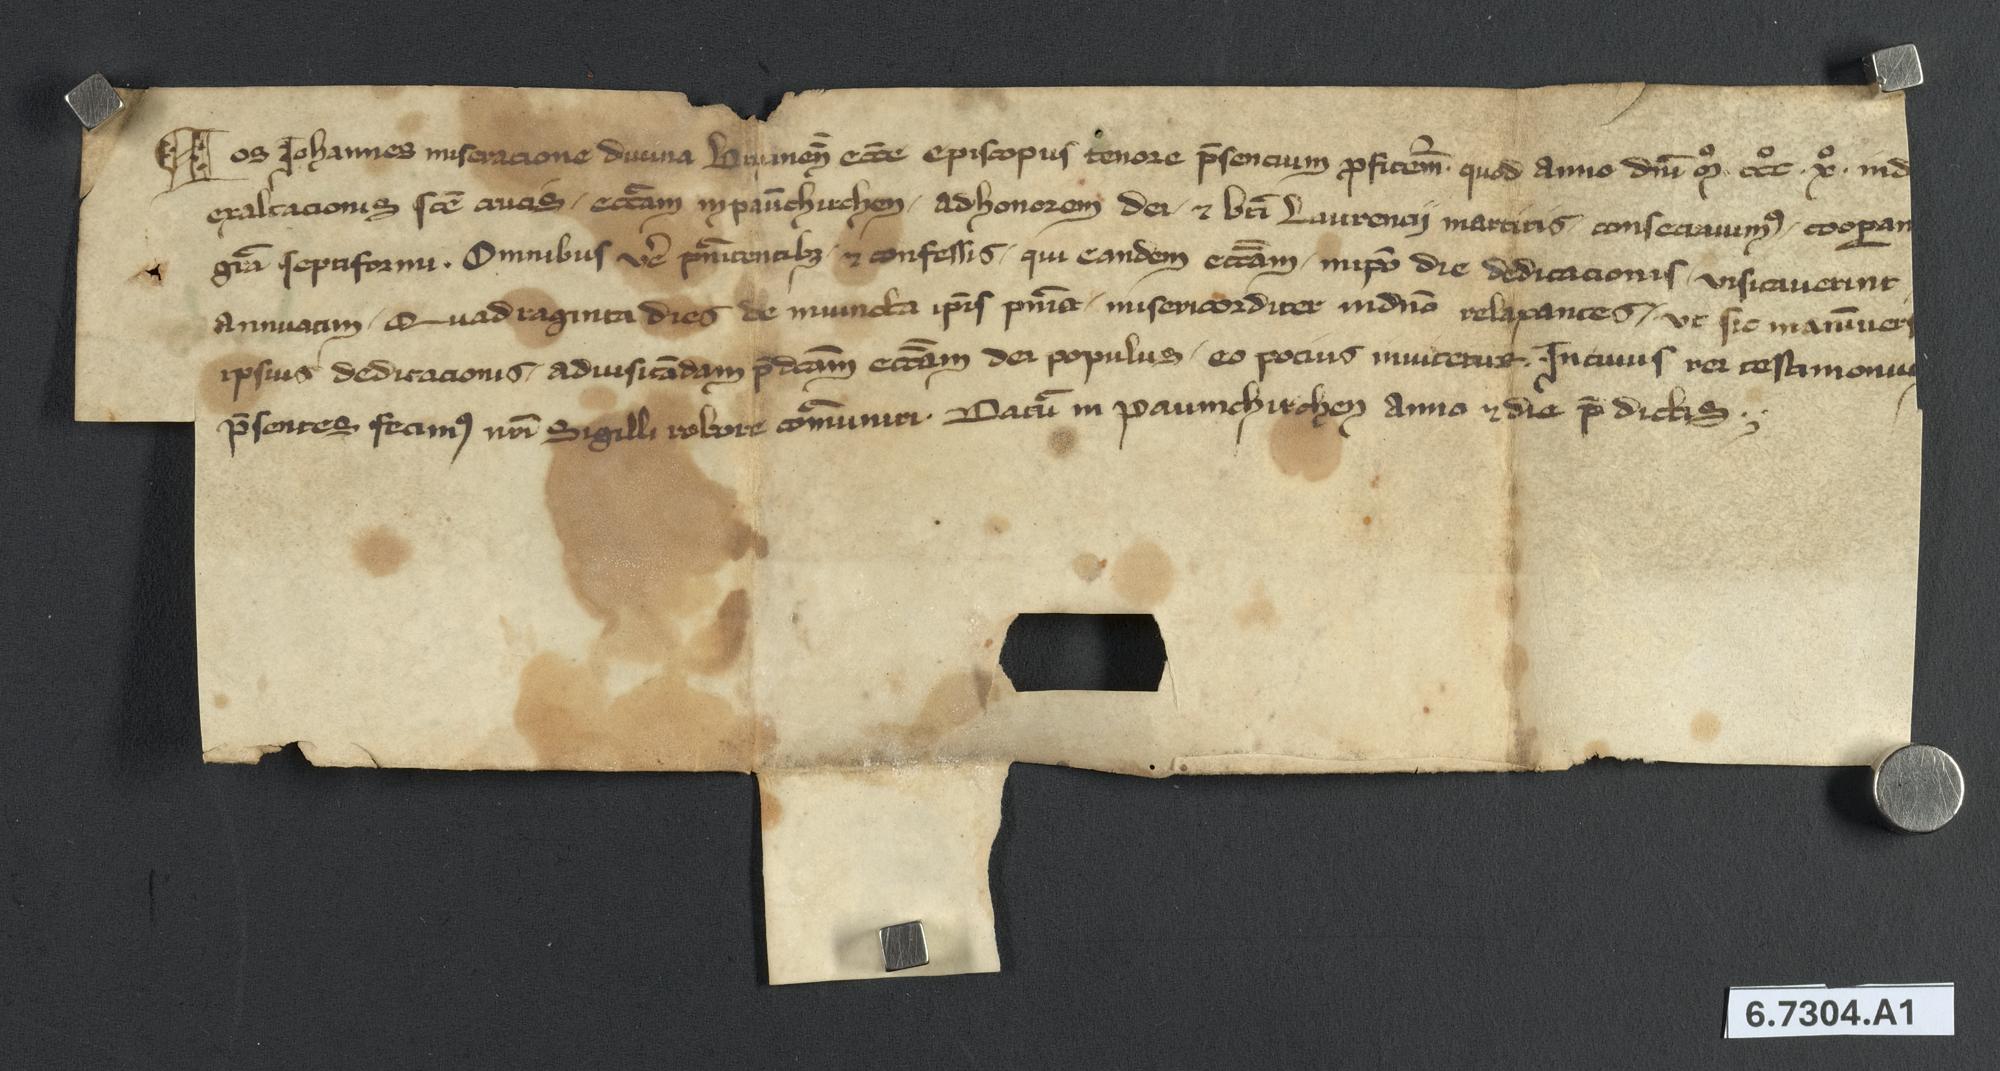 Nos Johannes miseracione diuina Brixineñ ecc̄e episcopus tenore p̄sencium ꝓfitem̃ quod Anno dn̄i mͦ. cccͦ. xͦ. ind
exaltacionis sc̄e crucis / ecc̄am in paūchirchen / ad honorem dei / ⁊ bt̄i Laurencij martiris / consecrauimꝰ / coop̲an
gr̄a septiformi. Omnibus ve᷑ pn̄itentibꝫ / ⁊ confessis / qui eandem ecc̄am / in ip̄o die dedicacionis / visitauerint
annuatim / Quadraginta dies de iniuncta ip̄is pn̄ia / misericorditer in dn̄o relaxantes / vt sic in an̄iuers
ipsius dedicacionis / ad uisitādam p̄dcām ecc̄am dei populus / eo pocius inuitetur. In cuius rei testimoniu
p̄sentes fecimꝰ nr̄i Sigilli robore com̄uniri. Datū in Paumchirchen Anno ⁊ die p̄dictis.
6.7304.A1